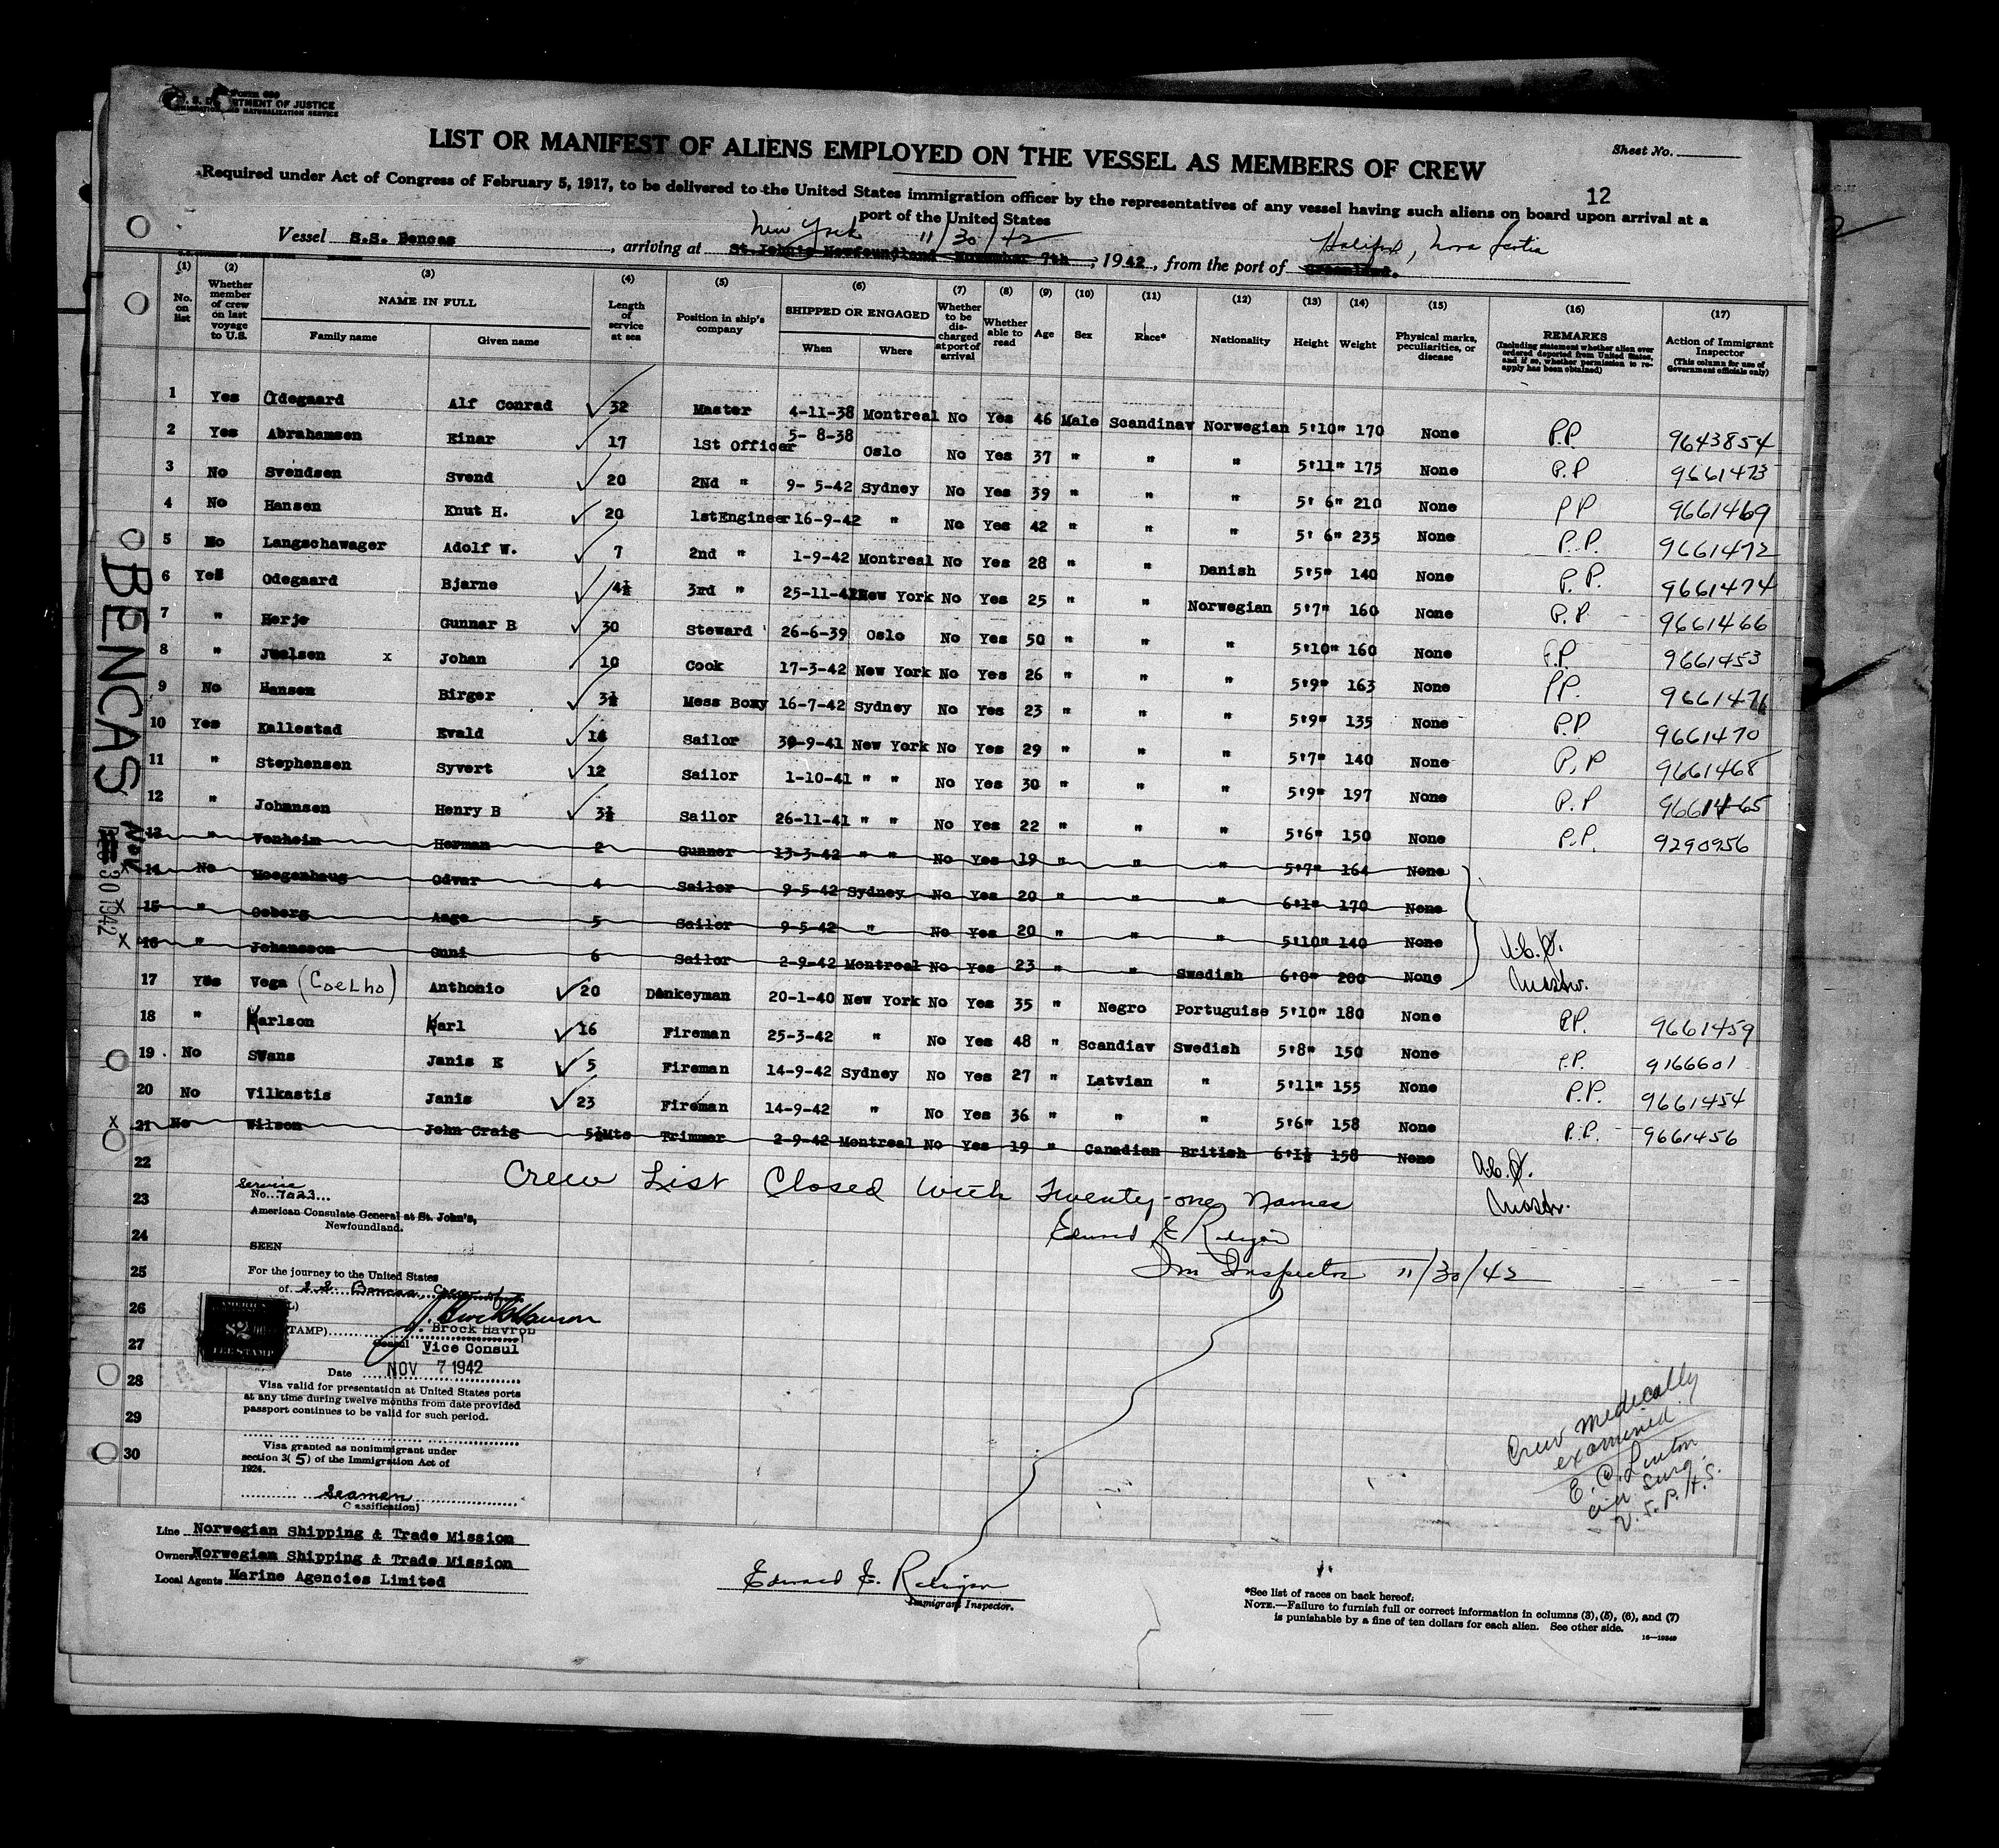 FORM 680
U. S. DEPARTMENT OF JUSTICE
IMMIGRATION AND NATURALIZATION SERVICE
LIST OR MANIFEST OF ALIENS EMPLOYED ON THE VESSEL AS MEMBERS OF CREW
Sheet No.
12
Required under Act of Congress of February 5, 1917, to be delivered to the United States immigration officer by the representatives of any vessel having such aliens on board upon arrival at a
port of the United States
New York 11/30/42 Halifax, Nova Scotia
Vessel S.S. Bencas, arriving at St.John's Newfoundland November 7th, 1942, from the port of Greenland.
(1) No. on list
(2) Whether member of crew on last voyage to U.S.
(3) NAME IN FULL Family name Given name
(4) Length of service at sea
(5) Position in ship's company
(6) SHIPPED OR ENGAGED When Where
(7) Whether to be discharged at port of arrival
(8) Whether able to read
(9) Age
(10) Sex
(11) Race*
(12) Nationality
(13) Height
(14) Weight
(15) Physical marks, peculiarities, or disease
(16) REMARKS (Including statement whether alien ever ordered deported from United States, and if so, whether permission to reapply has been obtained)
(17) Action of Immigrant Inspector (This column for use of Government officials only)
1 Yes Odegaard Alf Conrad 32 Master 4-11-38 Montreal No Yes 46 Male Scandinav Norwegian 5'10" 170 None P.P. 9643854
2 Yes Abrahamsen Einar 17 1St Officer 5- 8-38 Oslo No Yes 37 " " " 5'11" 175 None P.P 9661473
3 No Svendsen Svend 20 2Nd " 9- 5-42 Sydney No Yes 39 " " " 5' 6" 210 None PP 9661469
4 No Hansen Knut H. 20 1stEngineer 16-9-42 " No Yes 42 " " " 5' 6" 235 None P.P. 9661472
5 No Langschawager Adolf W. 7 2nd " 1-9-42 Montreal No Yes 28 " " Danish 5'5" 140 None P.P. 9661474
6 Yes Odegaard Bjarne 4½ 3rd " 25-11-42 New York No Yes 25 " " Norwegian 5'7" 160 None P.P 9661466
7 " Herje Gunnar B 30 Steward 26-6-39 Oslo No Yes 50 " " " 5'10" 160 None P.P 9661453
8 " Juelsen x Johan 10 Cook 17-3-42 New York No Yes 26 " " " 5'9" 163 None PP. 9661471
9 No Hansen Birger 3½ Mess Boxy 16-7-42 Sydney No Yes 23 " " " 5'9" 135 None P.P 9661470
10 Yes Kallestad Evald 14 Sailor 30-9-41 New York No Yes 29 " " " 5'7" 140 None P.P 9661468
11 " Stephensen Syvert 12 Sailor 1-10-41 " " No Yes 30 " " " 5'9" 197 None P.P 9661465
12 " Johansen Henry B 3½ Sailor 26-11-41 " " No Yes 22 " " " 5'6" 150 None P.P. 9290956
13 " Venheim Herman 2 Gunner 13-3-42 " " No Yes 19 " " " 5'7" 164 None
14 No Hoegenhaug Odvar 4 Sailor 9-5-42 Sydney No Yes 20 " " " 6'1" 170 None
15 " Ooberg Aage 5 Sailor 9-5-42 " No Yes 20 " " " 5'10" 140 None
16 " Johansson Onni 6 Sailor 2-9-42 Montreal No Yes 23 " " Swedish 6'0" 200 None
17 Yes Vega (Coelho) Anthonio 20 Donkeyman 20-1-40 New York No Yes 35 " Negro Portuguise 5'10" 180 None P.P. 9661459
18 " Karlson Karl 16 Fireman 25-3-42 " No Yes 48 " Scandiav Swedish 5'8" 150 None P.P. 9166601
19 No Svans Janis E 5 Fireman 14-9-42 Sydney No Yes 27 " Latvian " 5'11" 155 None P.P. 9661454
20 No Vilkastis Janis 23 Fireman 14-9-42 " No Yes 36 " " " 5'6" 158 None P.P. 9661456
21 No Wilson John Craig 5½Mts Trimmer 2-9-42 Montreal No Yes 19 " Canadian British 6'1½ 158 None
22
23
24
25
26
27
28
29
30
BENCAS
Nov 30 1942
Crew List Closed with Twenty-one names
Im Inspector 11/30/42
Service
No. 7023
American Consulate General at St. John's,
Newfoundland.
SEEN
For the journey to the United States
of S.S. Bencas,
$2
FEE STAMP
J. Brock Havron
Vice Consul
Date NOV 7 1942
Visa valid for presentation at United States ports
at any time during twelve months from date provided
passport continues to be valid for such period.
Visa granted as nonimmigrant under
section 3(5) of the Immigration Act of
1924.
Seaman
Classification)
Crew medically
examined
U.S.P.H.S.
Line Norwegian Shipping & Trade Mission
Owners Norwegian Shipping & Trade Mission
Local Agents Marine Agencies Limited
Immigrant Inspector.
*See list of races on back hereof.
NOTE.—Failure to furnish full or correct information in columns (3), (5), (6), and (7)
is punishable by a fine of ten dollars for each alien. See other side.